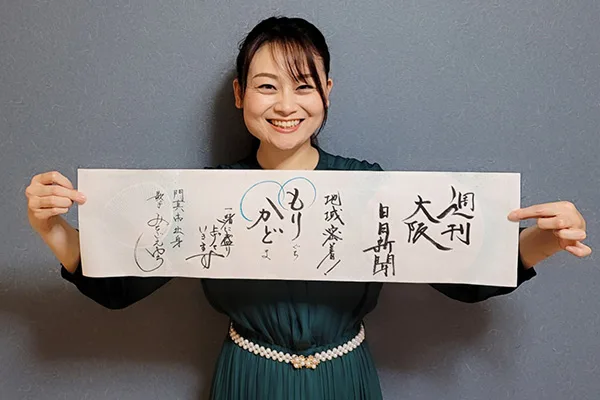 週刊
大阪
日日新聞
地域密着!!
もりぐち
かどま
一緒に盛り
上げて
いきます
門真市出身
歌手